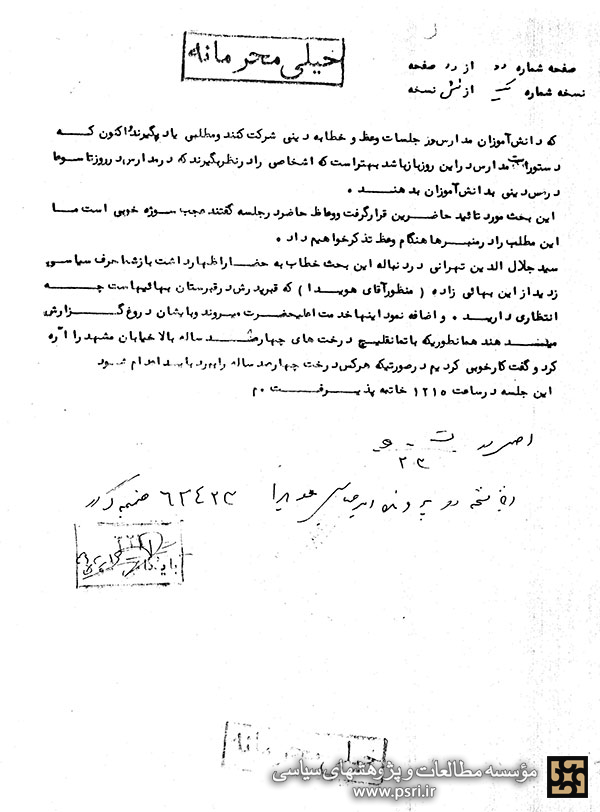 خیلی محرمانه
صفحه شماره دو از دو صفحه
نسخه شماره یک از شش نسخه
که دانش‌آموزان مدارس در جلسات وعظ و خطابه دینی شرکت کنند و مطلبی یاد بگیرند اکنون که
دستور است مدارس در این روز باز باشد بهتر است که اشخاصی را در نظر بگیرند که در مدارس در روز تاسوعا
درس دینی بدانش‌آموزان بدهند .
این بحث مورد تائید حاضرین قرار گرفت و وعاظ حاضر در جلسه گفتند عجب سوژه خوبی است ما
این مطلب را در منبرها هنگام وعظ تذکر خواهیم داد .
سید جلال الدین تهرانی در دنباله این بحث خطاب به حضار اظهار داشت باز شما حرف سیاسی
زدید از این بهائی زاده ( منظور آقای هویدا ) که قبر پدرش در قبرستان بهائیهاست چه
انتظاری دارید . و اضافه نمود اینها خدمت اعلیحضرت میروند و بایشان دروغ گزارش
میدهند همانطوریکه باتمانقلیچ درخت های چهارصد ساله بالا خیابان مشهد را اره
کرد و گفت کار خوبی کردیم در صورتیکه هرکس درخت چهارصد ساله را ببرد باید اعدام شود
این جلسه در ساعت ۱۲۱۵ خاتمه پذیرفت . م
اصل در
۲۳
در پرونده امیرعباس هویدا ۶۲۴۲۳ ضمیمه گردد
بایگانی
خیلی محرمانه
مؤسسه مطالعات و پژوهشهای سیاسی
www.psri.ir